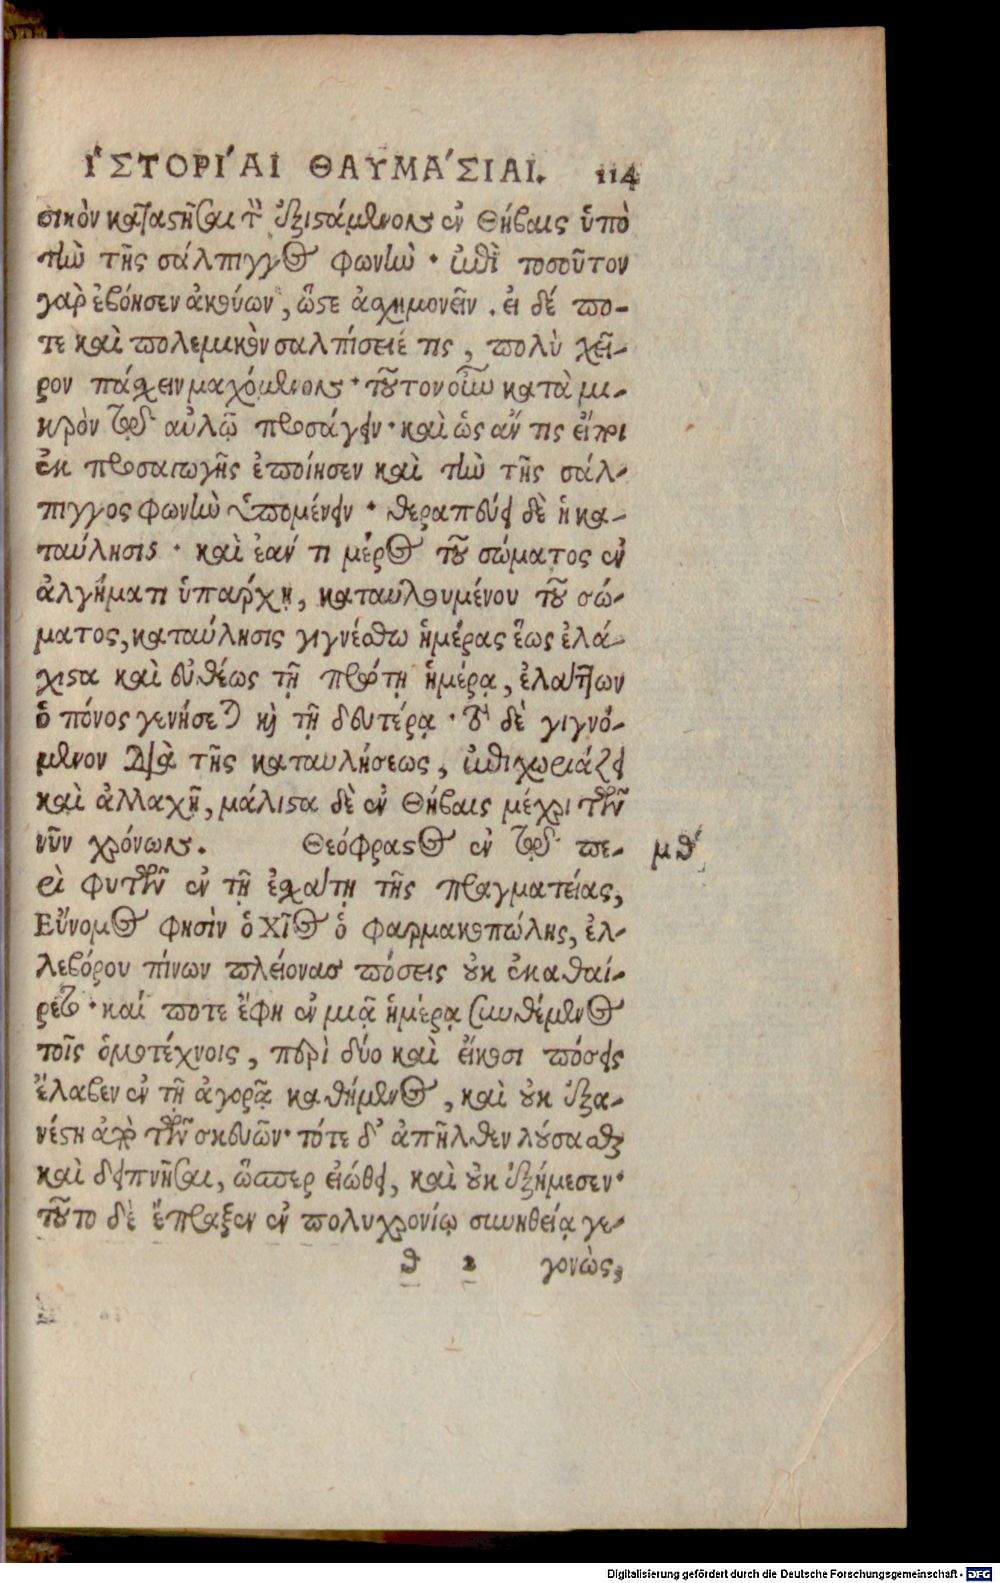 ἹΣΤΟΡΙ´ΑΙ ΘΑΥΜΑ´ΣΙΑΙ. 114
σικὸν καταστῆσαι τῶν ἐξισταμένους ἐν Θήβαις ὑπὸ
τὴν τῆς σάλπιγγος φωνὴν · ἐπὶ τοσοῦτον
γὰρ ἐβόησεν ἀκούων, ὥστε ἀσχημονεῖν . εἰ δέ πο-
τε καὶ πολεμικὸν σαλπίσειέ τις, πολὺ χεῖ-
ρον πάσχειν μαχόμενος · τοῦτον οὖν κατὰ μι-
κρὸν τῷ αὐλῷ προσάγειν · καὶ ὡς ἄν τις εἴποι
ἐκ προσαγωγῆς ἐποίησεν καὶ τὴν τῆς σάλ-
πιγγος φωνὴν ὑπομένειν · θεραπεύει δὲ ἡ κα-
ταύλησις · καὶ ἐάν τι μέρος τοῦ σώματος ἐν
ἀλγήματι ὑπάρχῃ, καταυλουμένου τοῦ σώ-
ματος, καταύλησις γιγνέσθω ἡμέρας ἕως ἐλά-
χιστα καὶ εὐθέως τῇ πρώτῃ ἡμέρᾳ, ἐλάττων
ὁ πόνος γενήσεται καὶ τῇ δευτέρᾳ · τὸ δὲ γιγνό-
μενον διὰ τῆς καταυλήσεως, ἐπιχωριάζει
καὶ ἀλλαχῇ, μάλιστα δὲ ἐν Θήβαις μέχρι τῶν
νῦν χρόνων. Θεόφραστος ἐν τῷ πε- μθ´
ρὶ φυτῶν ἐν τῇ ἐσχάτῃ τῆς πραγματείας,
Εὔνομος φησὶν ὁ Χῖος ὁ φαρμακοπώλης, ἐλ-
λεβόρου πίνων πλείονας πόσεις οὐκ ἐκαθαί-
ρετο · καί ποτε ἔφη ἐν μιᾷ ἡμέρᾳ συνθέμενος
τοῖς ὁμοτέχνοις, περὶ δύο καὶ εἴκοσι πόσεις
ἔλαβεν ἐν τῇ ἀγορᾷ καθήμενος, καὶ οὐκ ἐξα-
νέστη ἀπὸ τῶν σκευῶν · τότε δ᾽ ἀπῆλθεν λούσασθαι
καὶ δειπνῆσαι, ὥσπερ εἰώθει, καὶ οὐκ ἐξήμεσεν ·
τοῦτο δὲ ἔπραξεν ἐν πολυχρονίῳ συνηθείᾳ γε-
θ 2 γονὼς,
Digitalisierung gefördert durch die Deutsche Forschungsgemeinschaft - DFG